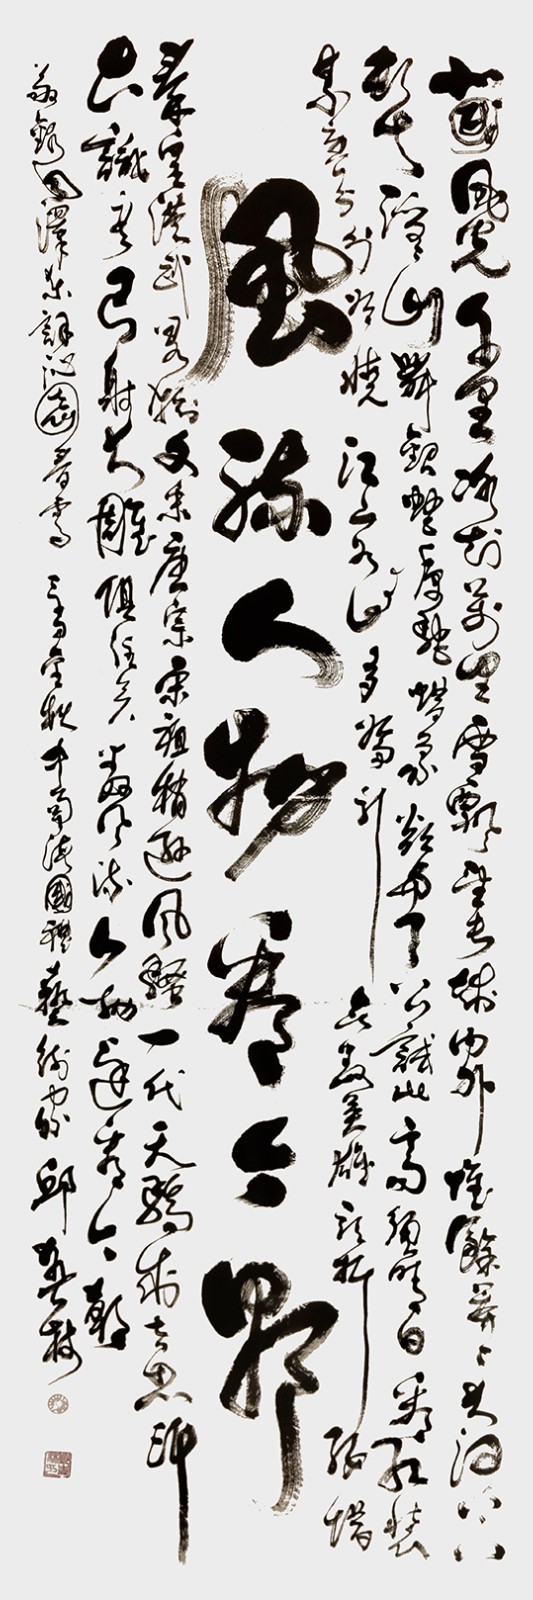 北國風光千里冰封萬里雪飄望長城內外惟餘莽莽大河上下
頓失滔滔山舞銀蛇原馳蠟象欲與天公試比高須晴日看紅裝
素裹分外妖嬈江山如此多嬌引無數英雄競折腰惜
風流人物看今朝
秦皇漢武略輸文采唐宗宋祖稍遜風騷一代天驕成吉思汗
只識彎弓射大雕俱往矣數風流人物還看今朝
錄毛澤東詞沁園春雪 國禮藝術家邱